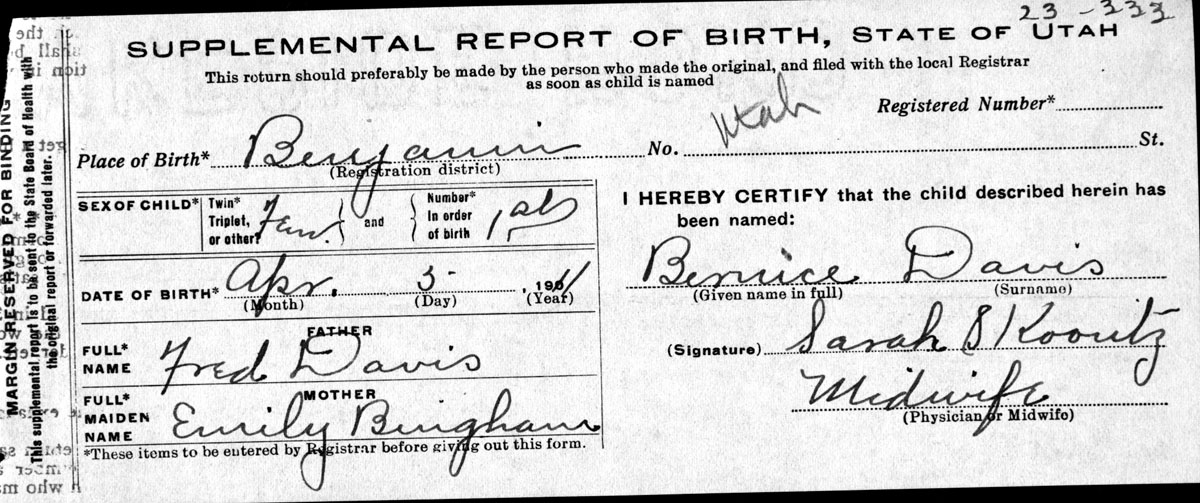 23 - 333
SUPPLEMENTAL REPORT OF BIRTH, STATE OF UTAH
This return should preferably be made by the person who made the original, and filed with the local Registrar
as soon as child is named
Registered Number*
Utah
Place of Birth* Benjamin No. St.
(Registration district)
SEX OF CHILD* Twin* Triplet, or other? Fem. and Number* In order of birth 1st
DATE OF BIRTH* Apr. 3- 1911
(Month) (Day) (Year)
FATHER
FULL* NAME Fred Davis
MOTHER
FULL* MAIDEN NAME Emily Bingham
*These items to be entered by Registrar before giving out this form.
I HEREBY CERTIFY that the child described herein has
been named:
Bernice Davis
(Given name in full) (Surname)
(Signature) Sarah S Koontz
Midwife
(Physician or Midwife)
MARGIN RESERVED FOR BINDING
This supplemental report is to be sent to the State Board of Health with
the original report or forwarded later.